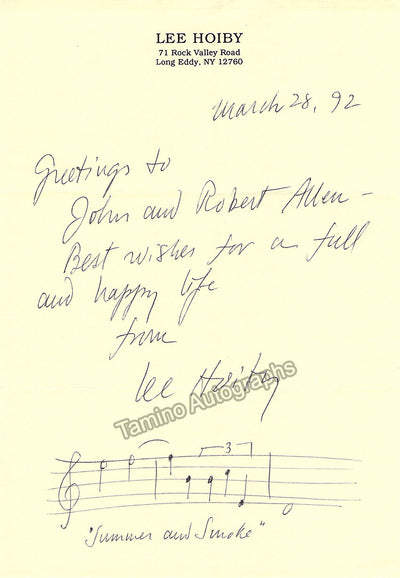 LEE HOIBY
71 Rock Valley Road
Long Eddy, NY 12760
March 28, 92
Greetings to
John and Robert Allen –
Best wishes for a full
and happy life
from
Lee Hoiby
Tamino Autographs
3
"Summer and Smoke"